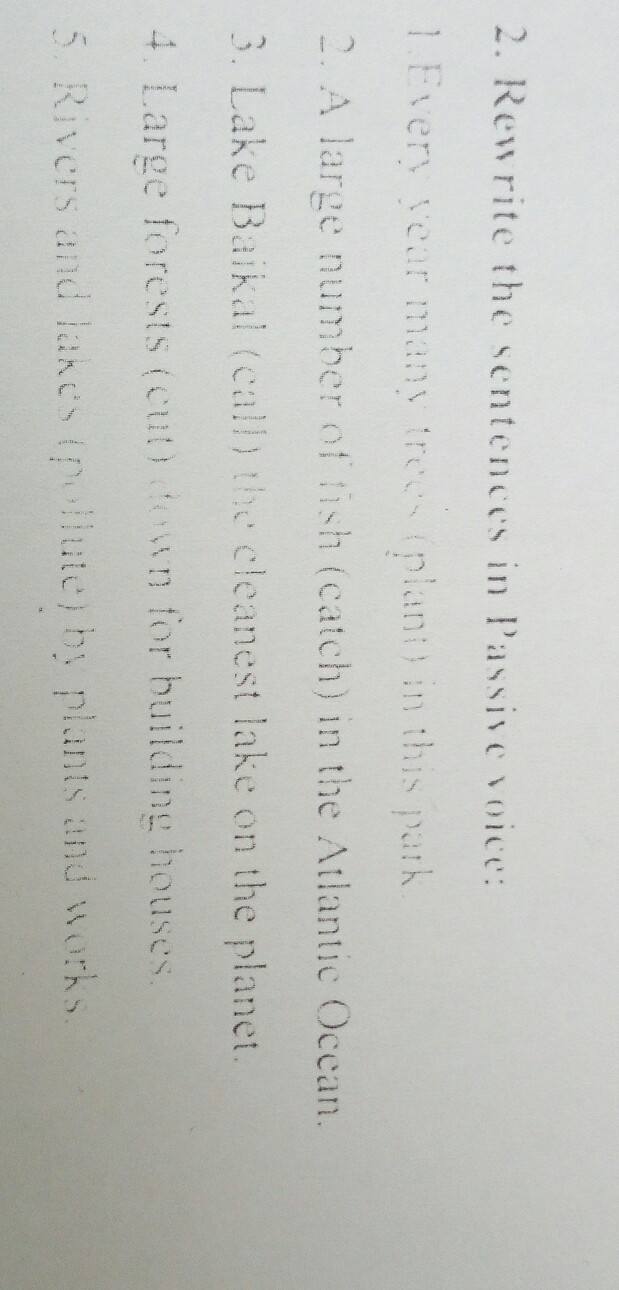 2. Rewrite the sentences in Passive voice:
1. Every year many trees (plant) in this park.
2. A large number of fish (catch) in the Atlantic Ocean.
3. Lake Baikal (call) the cleanest lake on the planet.
4. Large forests (cut) down for building houses.
5. Rivers and lakes (pollute) by plants and works.